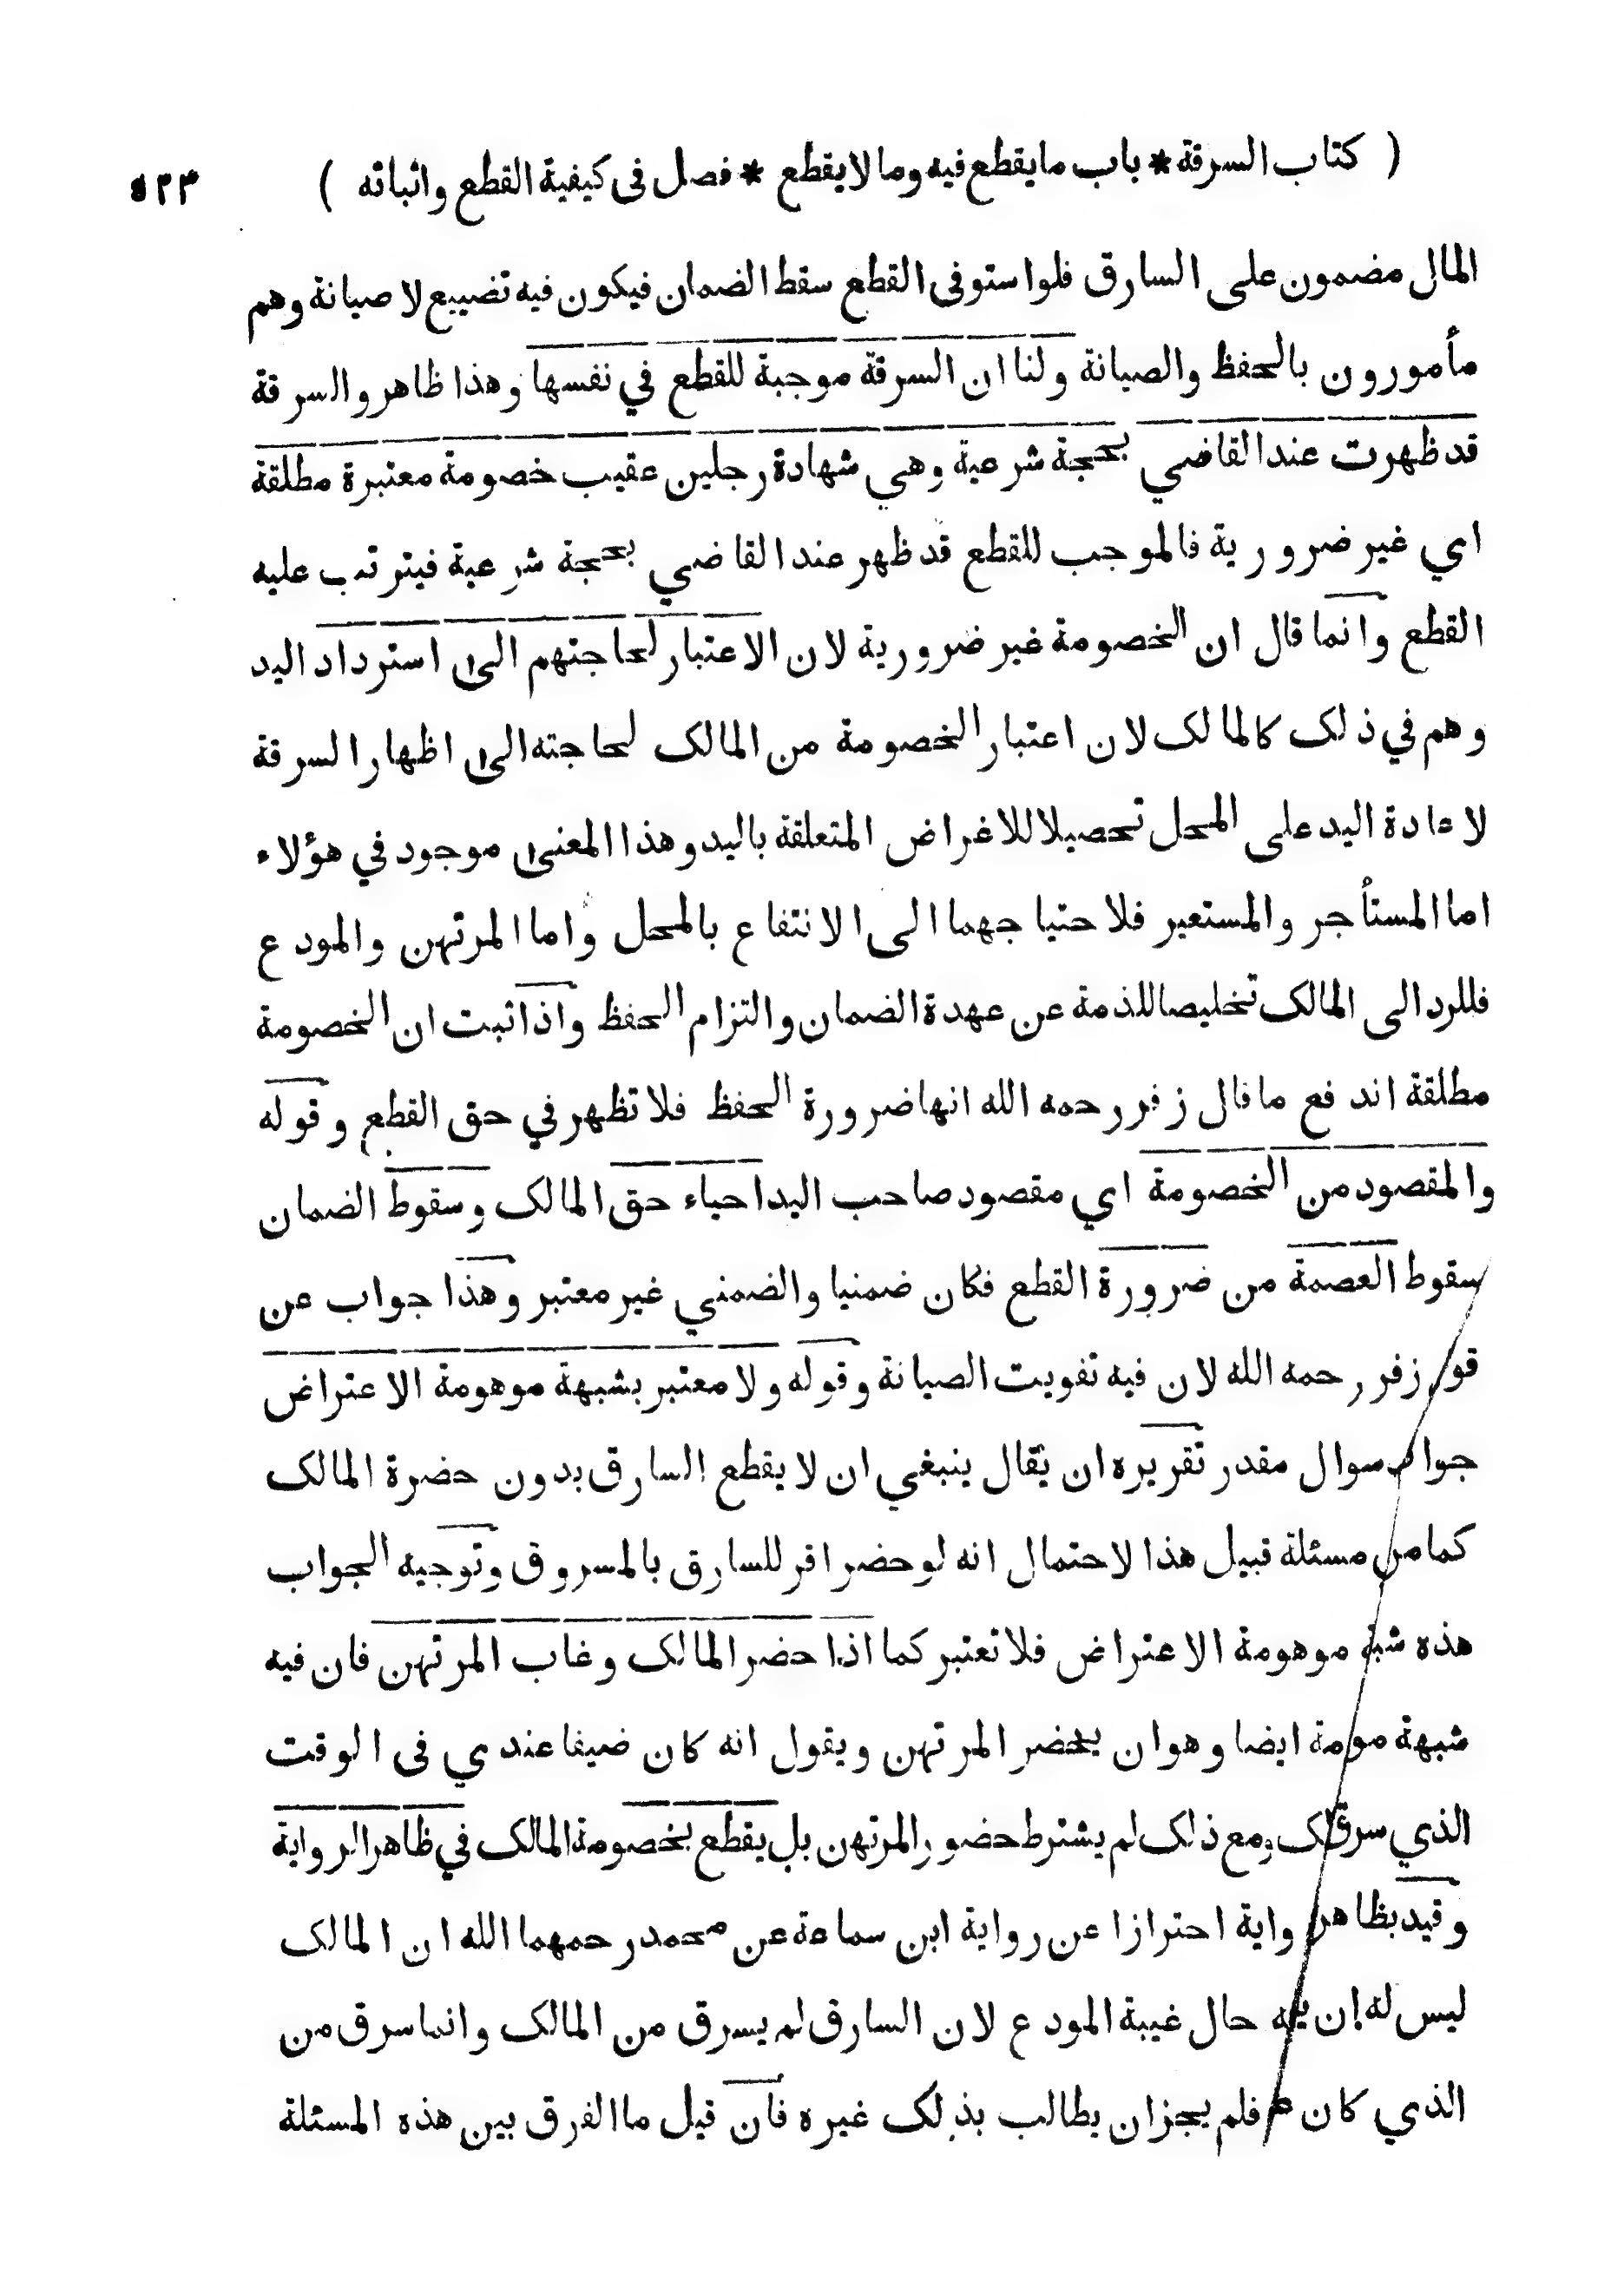 ( كتاب السرقة * باب ما يقطع فيه وما لا يقطع * فصل فى كيفية القطع واثباته ) ٥٢٣
المال مضمون على السارق فلو استوفى القطع سقط الضمان فيكون فيه تضييع لا صيانة وهم
مأمورون بالحفظ والصيانة ولنا ان السرقة موجبة للقطع في نفسها وهذا ظاهر والسرقة
قد ظهرت عند القاضي بحجة شرعية وهي شهادة رجلين عقيب خصومة معتبرة مطلقة
اي غير ضرورية فالموجب للقطع قد ظهر عند القاضي بحجة شرعية فيترتب عليه
القطع وانما قال ان الخصومة غير ضرورية لان الاعتبار لحاجتهم الى استرداد اليد
وهم في ذلك كالمالك لان اعتبار الخصومة من المالك لحاجته الى اظهار السرقة
لاعادة اليد على المحل تحصيلا للاغراض المتعلقة باليد وهذا المعنى موجود في هؤلاء
اما المستأجر والمستعير فلاحتياجهما الى الانتفاع بالمحل واما المرتهن والمودع
فللرد الى المالك تخليصا للذمة عن عهدة الضمان والتزام الحفظ واذا ثبت ان الخصومة
مطلقة اندفع ما قال زفر رحمه الله انها ضرورة الحفظ فلا تظهر في حق القطع وقوله
والمقصود من الخصومة اي مقصود صاحب اليد احياء حق المالك وسقوط الضمان
سقوط العصمة من ضرورة القطع فكان ضمنيا والضمني غير معتبر وهذا جواب عن
زفر رحمه الله لان فيه تفويت الصيانة وقوله ولا معتبر بشبهة موهومة الاعتراض
سوال مقدر تقريره ان يقال ينبغي ان لا يقطع السارق بدون حضرة المالك
كما مر مسئلة قبيل هذا لاحتمال انه لو حضر اقر للسارق بالمسروق وتوجيه الجواب
هذه موهومة الاعتراض فلا تعتبر كما اذا حضر المالك وغاب المرتهن فان فيه
شبهة ايضا وهو ان يحضر المرتهن ويقول انه كان ضيفا عندي فى الوقت
الذي سرق ومع ذلك لم يشترط حضور المرتهن بل يقطع بخصومة المالك في ظاهر الرواية
وقيد بظاهر احترازا عن رواية ابن سماعة عن محمد رحمهما الله ان المالك
ليس له ان حال غيبة المودع لان السارق لم يسرق من المالك وانما سرق من
الذي كان فلم يجز ان يطالب بذلك غيره فان قيل ما الفرق بين هذه المسئلة